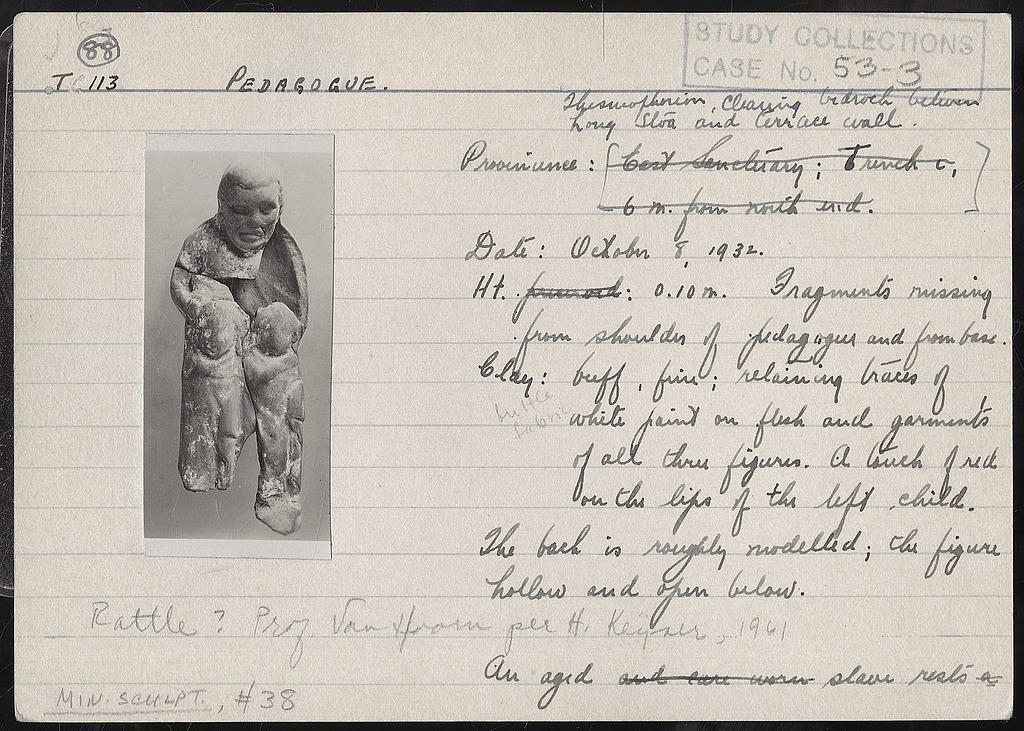 88
STUDY COLLECTIONS
CASE No. 53-3
T 113 PEDAGOGUE.
Thesmophorion, clearing bedrock between
Long Stoa and terrace wall.
Provinience: [East Sanctuary; Trench C,
6 m. from north end.]
Date: October 8, 1932.
Ht. preserved: 0.10 m. Fragments missing
from shoulder of pedagogue and from base.
Clay: buff, fine; retaining traces of
white paint on flesh and garments
buff
fabric
of all three figures. A touch of red
on the lips of the left child.
The back is roughly modelled; the figure
hollow and open below.
Rattle? Prof. Van Hoorn per H. Keyser, 1961
An aged and care worn slave rests a
MIN. SCULPT., #38